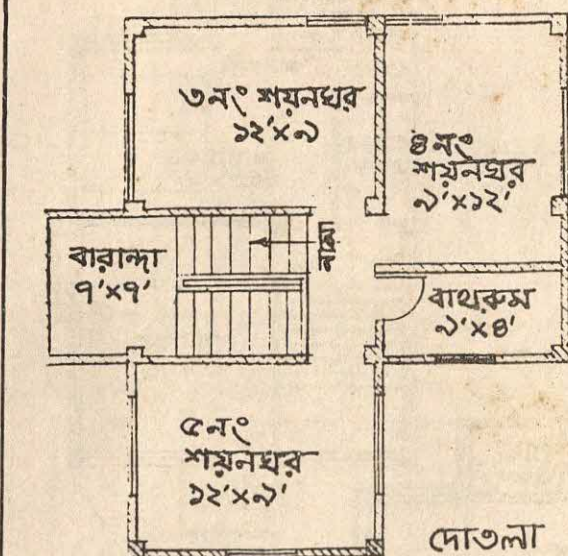 ৩নং শয়নঘর
১২'×৯
৪নং
শয়নঘর
৯'×১২'
বারান্দা
৭'×৭'
নামা
বাথরুম
৯'×৪'
৫নং
শয়নঘর
১২'×৯'
দোতলা